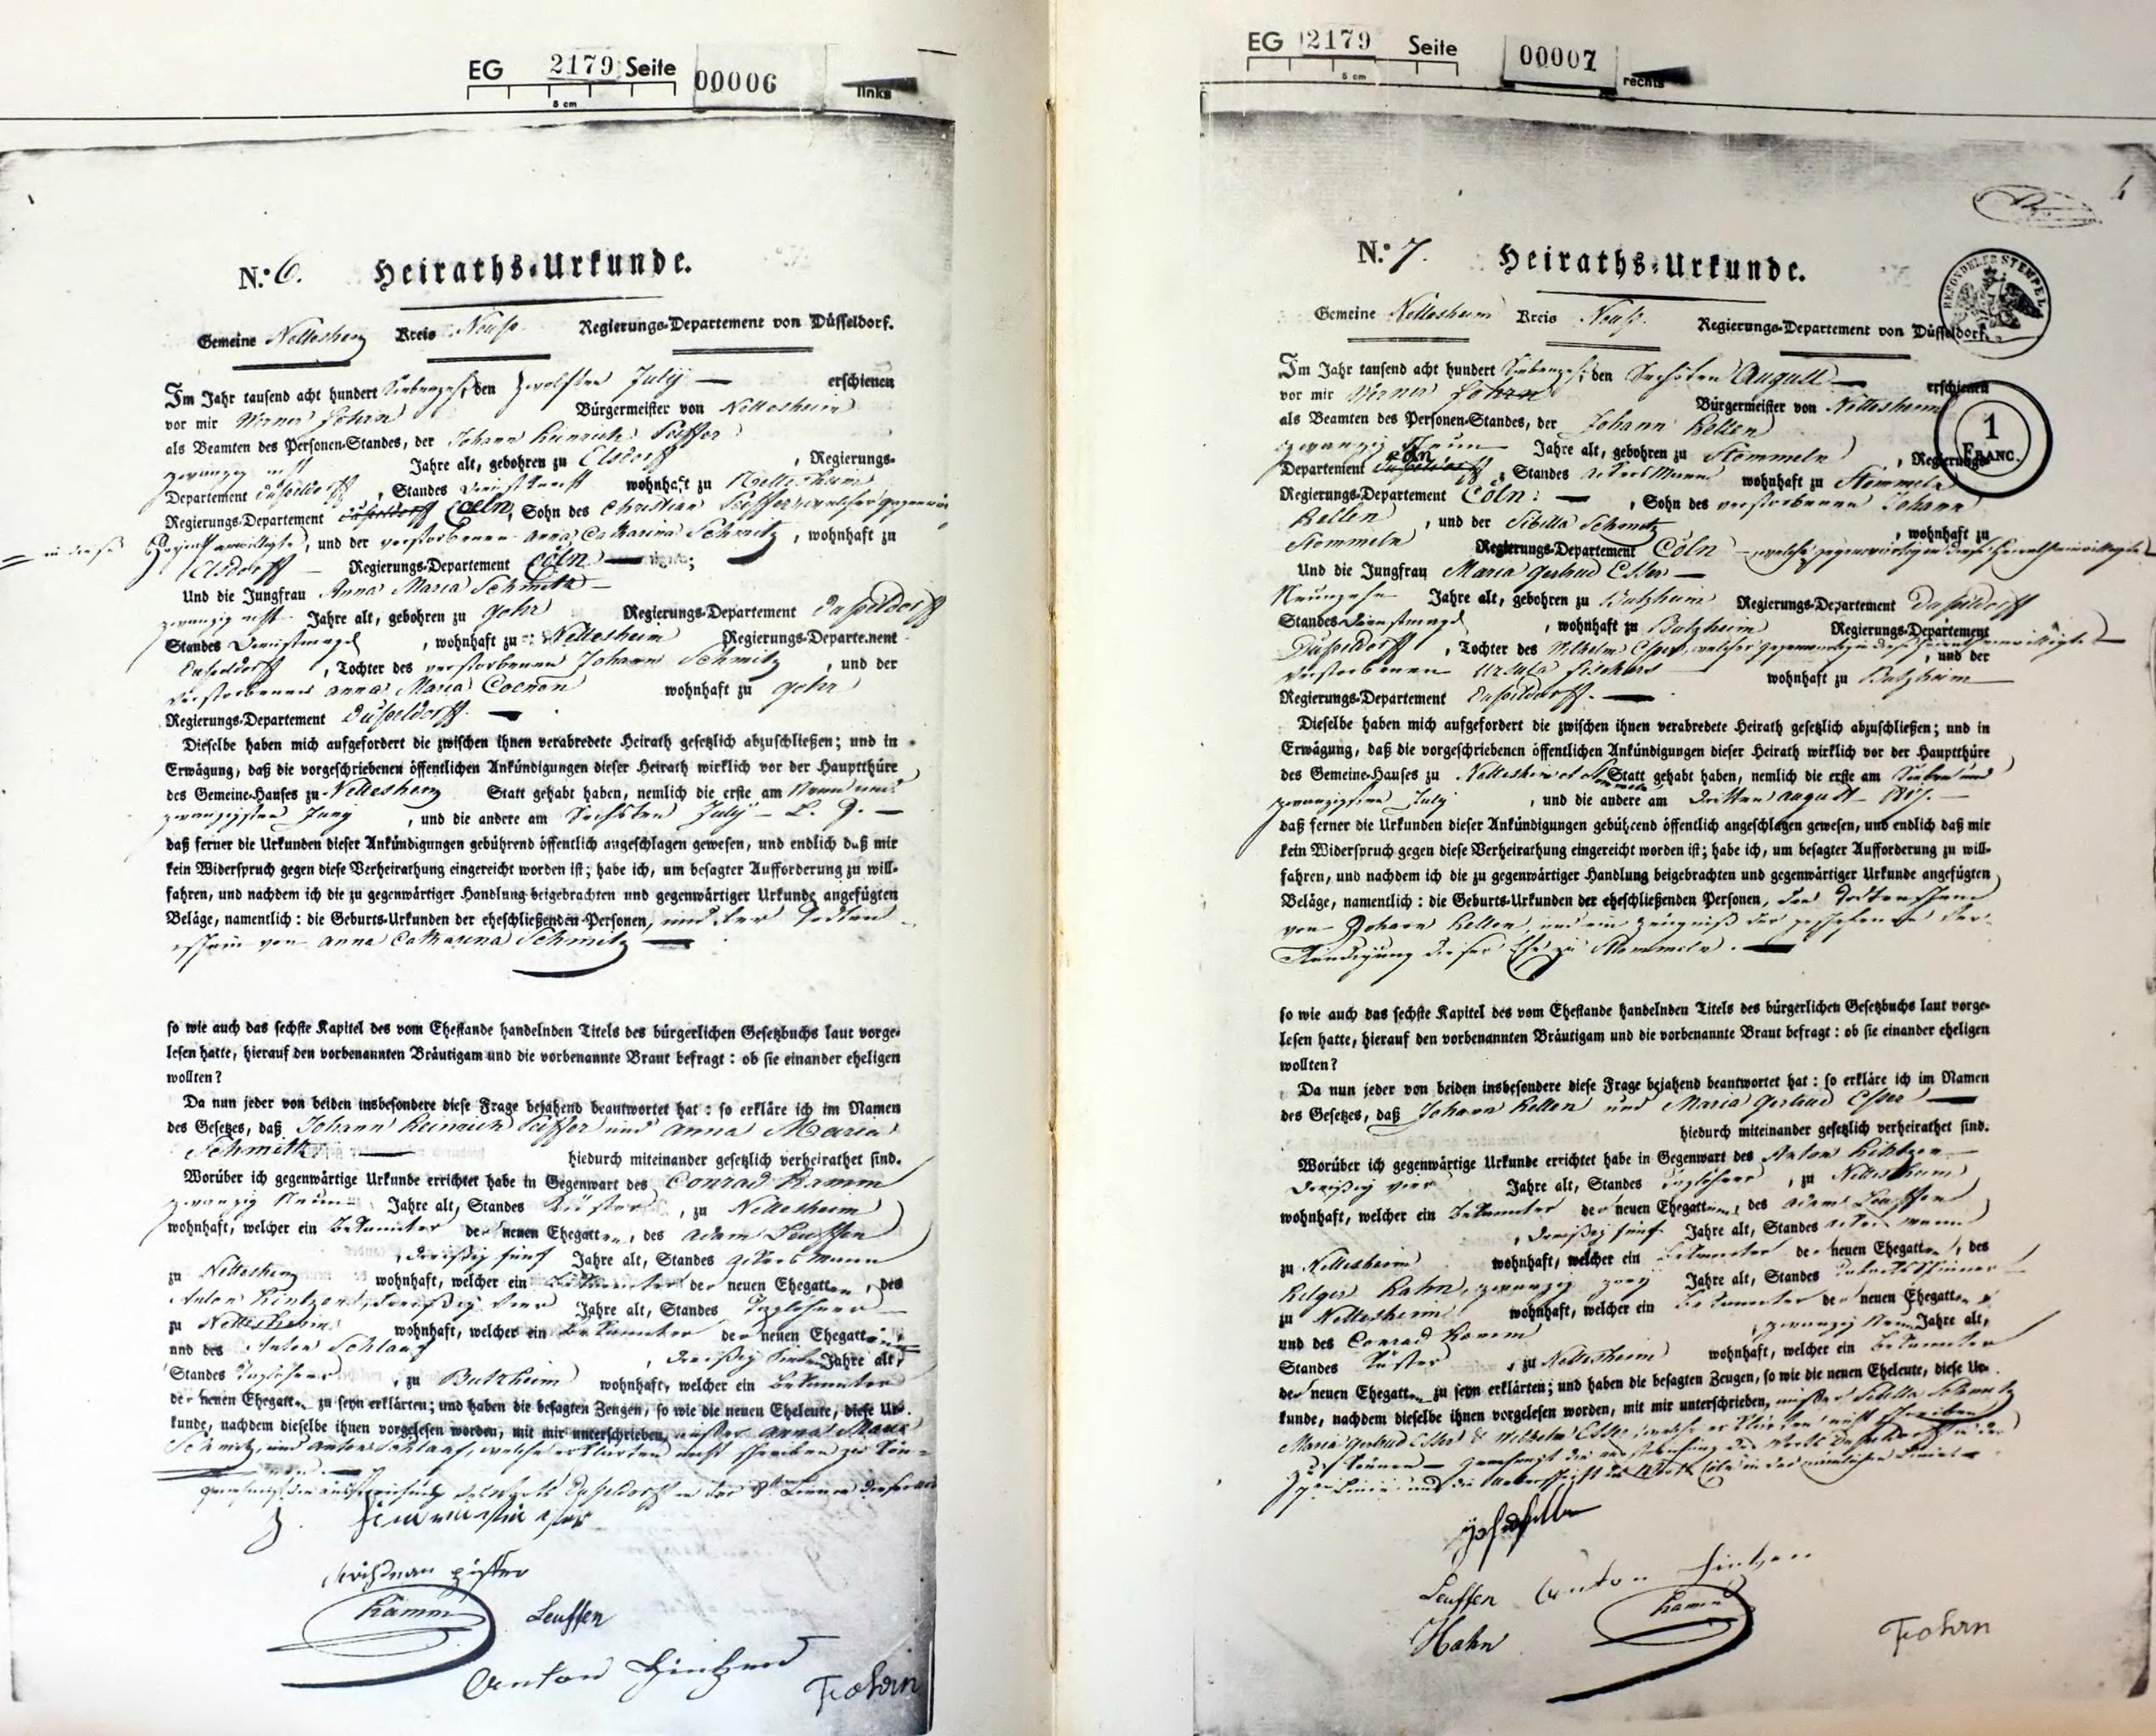 EG 2179 Seite 00006
5 cm
links
N.º 6. Heiraths-Urkunde.
Gemeine Nettesheim Kreis Neuss Regierungs-Departement von Düsseldorf.
Im Jahr tausend acht hundert Siebenzehn, den zwölften July — erschienen
vor mir Werner Bürgermeister von Nettesheim
als Beamten des Personen-Standes, der Johann Heinrich
zwanzig acht Jahre alt, gebohren zu Elsdorff, Regierungs-
Departement Düsseldorff, Standes Dienstknecht wohnhaft zu Nettesheim
Regierungs-Departement Düsseldorff Coeln, Sohn des Christian welcher
in diese
Heyrath einwilligte, und der verstorbenen Anna Catharina Schmitz, wohnhaft zu
Elsdorff — Regierungs-Departement Cöln —;
Und die Jungfrau Anna Maria Schmitz —
zwanzig acht Jahre alt, gebohren zu Gohr Regierungs-Departement Düsseldorff
Standes Dienstmagd, wohnhaft zu Nettesheim Regierungs-Departement
Düsseldorff, Tochter des verstorbenen Johann Schmitz, und der
verstorbenen Anna Maria Coenen wohnhaft zu Gohr
Regierungs-Departement Düsseldorff. —
Dieselbe haben mich aufgefordert die zwischen ihnen verabredete Heirath gesetzlich abzuschließen; und in
Erwägung, daß die vorgeschriebenen öffentlichen Ankündigungen dieser Heirath wirklich vor der Hauptthüre
des Gemeine-Hauses zu Nettesheim Statt gehabt haben, nemlich die erste am Neun und
zwanzigsten Juny, und die andere am Sechsten July — —
daß ferner die Urkunden dieser Ankündigungen gebührend öffentlich angeschlagen gewesen, und endlich daß mir
kein Widerspruch gegen diese Verheirathung eingereicht worden ist; habe ich, um besagter Aufforderung zu will-
fahren, und nachdem ich die zu gegenwärtiger Handlung beigebrachten und gegenwärtiger Urkunde angefügten
Beläge, namentlich: die Geburts-Urkunden der eheschließenden Personen, und der Todten
schein von Anna Catharina Schmitz —
so wie auch das sechste Kapitel des vom Ehestande handelnden Titels des bürgerlichen Gesetzbuchs laut vorge-
lesen hatte, hierauf den vorbenannten Bräutigam und die vorbenannte Braut befragt: ob sie einander eheligen
wollten?
Da nun jeder von beiden insbesondere diese Frage bejahend beantwortet hat: so erkläre ich im Namen
des Gesetzes, daß Johann Heinrich und Anna Maria
Schmitz — hiedurch miteinander gesetzlich verheirathet sind.
Worüber ich gegenwärtige Urkunde errichtet habe in Gegenwart des Conrad Hamm
zwanzig Neun Jahre alt, Standes Küster, zu Nettesheim
wohnhaft, welcher ein Bekannter der neuen Ehegatten, des Adam Leuffen
, dreißig fünf Jahre alt, Standes Ackersmann
zu Nettesheim wohnhaft, welcher ein Bekannter der neuen Ehegatten, des
Anton Hintzen, dreißig vier Jahre alt, Standes Taglöhner
zu Nettesheim wohnhaft, welcher ein Bekannter der neuen Ehegatten
und des Anton Schlaaf, dreißig Sieben Jahre alt,
Standes Taglöhner, zu Butzheim wohnhaft, welcher ein Bekannter
der neuen Ehegatten zu seyn erklärten; und haben die besagten Zeugen, so wie die neuen Eheleute, diese Ur-
kunde, nachdem dieselbe ihnen vorgelesen worden, mit mir unterschrieben, außer Anna Maria
Schmitz, und Anton Schlaaf, welche erklärten nicht schreiben zu kön-
nen. —
Genehmigt die Ausstreichung des Worts Düsseldorff in der 8ten Linie
Hamm Leuffen
Anton Hintzen
EG 2179 Seite 00007
5 cm
rechts
N.º 7. Heiraths-Urkunde.
BESONDERER STEMPEL
Gemeine Nettesheim Kreis Neuss. Regierungs-Departement von Düsseldorf.
Im Jahr tausend acht hundert Siebenzehn, den Sechsten August — erschienen
vor mir Werner Bürgermeister von Nettesheim
1 FRANC.
als Beamten des Personen-Standes, der Johann Kellen
zwanzig Neun Jahre alt, gebohren zu Stommeln, Regierungs-
Departement Düsseldorff Cöln, Standes Ackersmann wohnhaft zu Stommeln
Regierungs-Departement Cöln: —, Sohn des verstorbenen Johann
Kellen, und der Sibilla Schmitz, wohnhaft zu
Stommeln Regierungs-Departement Cöln — welche gegenwärtig in diese Heirath einwilligte
Und die Jungfrau Maria Gertrud Esser —
Neunzehn Jahre alt, gebohren zu Butzheim Regierungs-Departement Düsseldorff
Standes Dienstmagd, wohnhaft zu Butzheim Regierungs-Departement
Düsseldorff, Tochter des Wilhelm Esser, welcher gegenwärtig in diese Heirath einwilligte —, und der
verstorbenen Ursula Fischers wohnhaft zu Butzheim
Regierungs-Departement Düsseldorff. —
Dieselbe haben mich aufgefordert die zwischen ihnen verabredete Heirath gesetzlich abzuschließen; und in
Erwägung, daß die vorgeschriebenen öffentlichen Ankündigungen dieser Heirath wirklich vor der Hauptthüre
des Gemeine-Hauses zu Nettesheim et Stommeln Statt gehabt haben, nemlich die erste am Sieben und
zwanzigsten July, und die andere am dritten August 1817. —
daß ferner die Urkunden dieser Ankündigungen gebührend öffentlich angeschlagen gewesen, und endlich daß mir
kein Widerspruch gegen diese Verheirathung eingereicht worden ist; habe ich, um besagter Aufforderung zu will-
fahren, und nachdem ich die zu gegenwärtiger Handlung beigebrachten und gegenwärtiger Urkunde angefügten
Beläge, namentlich: die Geburts-Urkunden der eheschließenden Personen, den Todtenschein
von Johann Kellen, und ein Zeugniß der geschehenen Ver-
kündigung dieser Ehe zu Stommeln. —
so wie auch das sechste Kapitel des vom Ehestande handelnden Titels des bürgerlichen Gesetzbuchs laut vorge-
lesen hatte, hierauf den vorbenannten Bräutigam und die vorbenannte Braut befragt: ob sie einander eheligen
wollten?
Da nun jeder von beiden insbesondere diese Frage bejahend beantwortet hat: so erkläre ich im Namen
des Gesetzes, daß Johann Kellen und Maria Gertrud Esser —
hiedurch miteinander gesetzlich verheirathet sind.
Worüber ich gegenwärtige Urkunde errichtet habe in Gegenwart des Anton Hintzen
dreißig vier Jahre alt, Standes Taglöhner, zu Nettesheim
wohnhaft, welcher ein Bekannter der neuen Ehegatten, des Adam Leuffen
, dreißig fünf Jahre alt, Standes Ackersmann
zu Nettesheim wohnhaft, welcher ein Bekannter der neuen Ehegatten, des
Hilger Hahn, zwanzig zwey Jahre alt, Standes
zu Nettesheim wohnhaft, welcher ein Bekannter der neuen Ehegatten
und des Conrad Hamm, zwanzig Neun Jahre alt,
Standes Küster, zu Nettesheim wohnhaft, welcher ein Bekannter
der neuen Ehegatten zu seyn erklärten; und haben die besagten Zeugen, so wie die neuen Eheleute, diese Ur-
kunde, nachdem dieselbe ihnen vorgelesen worden, mit mir unterschrieben, außer Sibilla Schmitz
Maria Gertrud Esser & Wilhelm Esser, welche erklärten nicht schreiben
zu können — Genehmigt die Ausstreichung des Worts Düsseldorff in der
Linie und die Ueberschrift des Worts Cöln in der nämlichen Linie —
Leuffen Anton Hintzen
Hahn Hamm